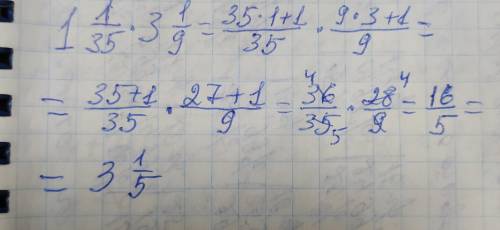 1 1/35 · 3 1/9 = 35·1+1/35 · 9·3+1/9 =
= 35+1/35 · 27+1/9 = 36 4/35 5 · 28 4/9 = 16/5 =
= 3 1/5